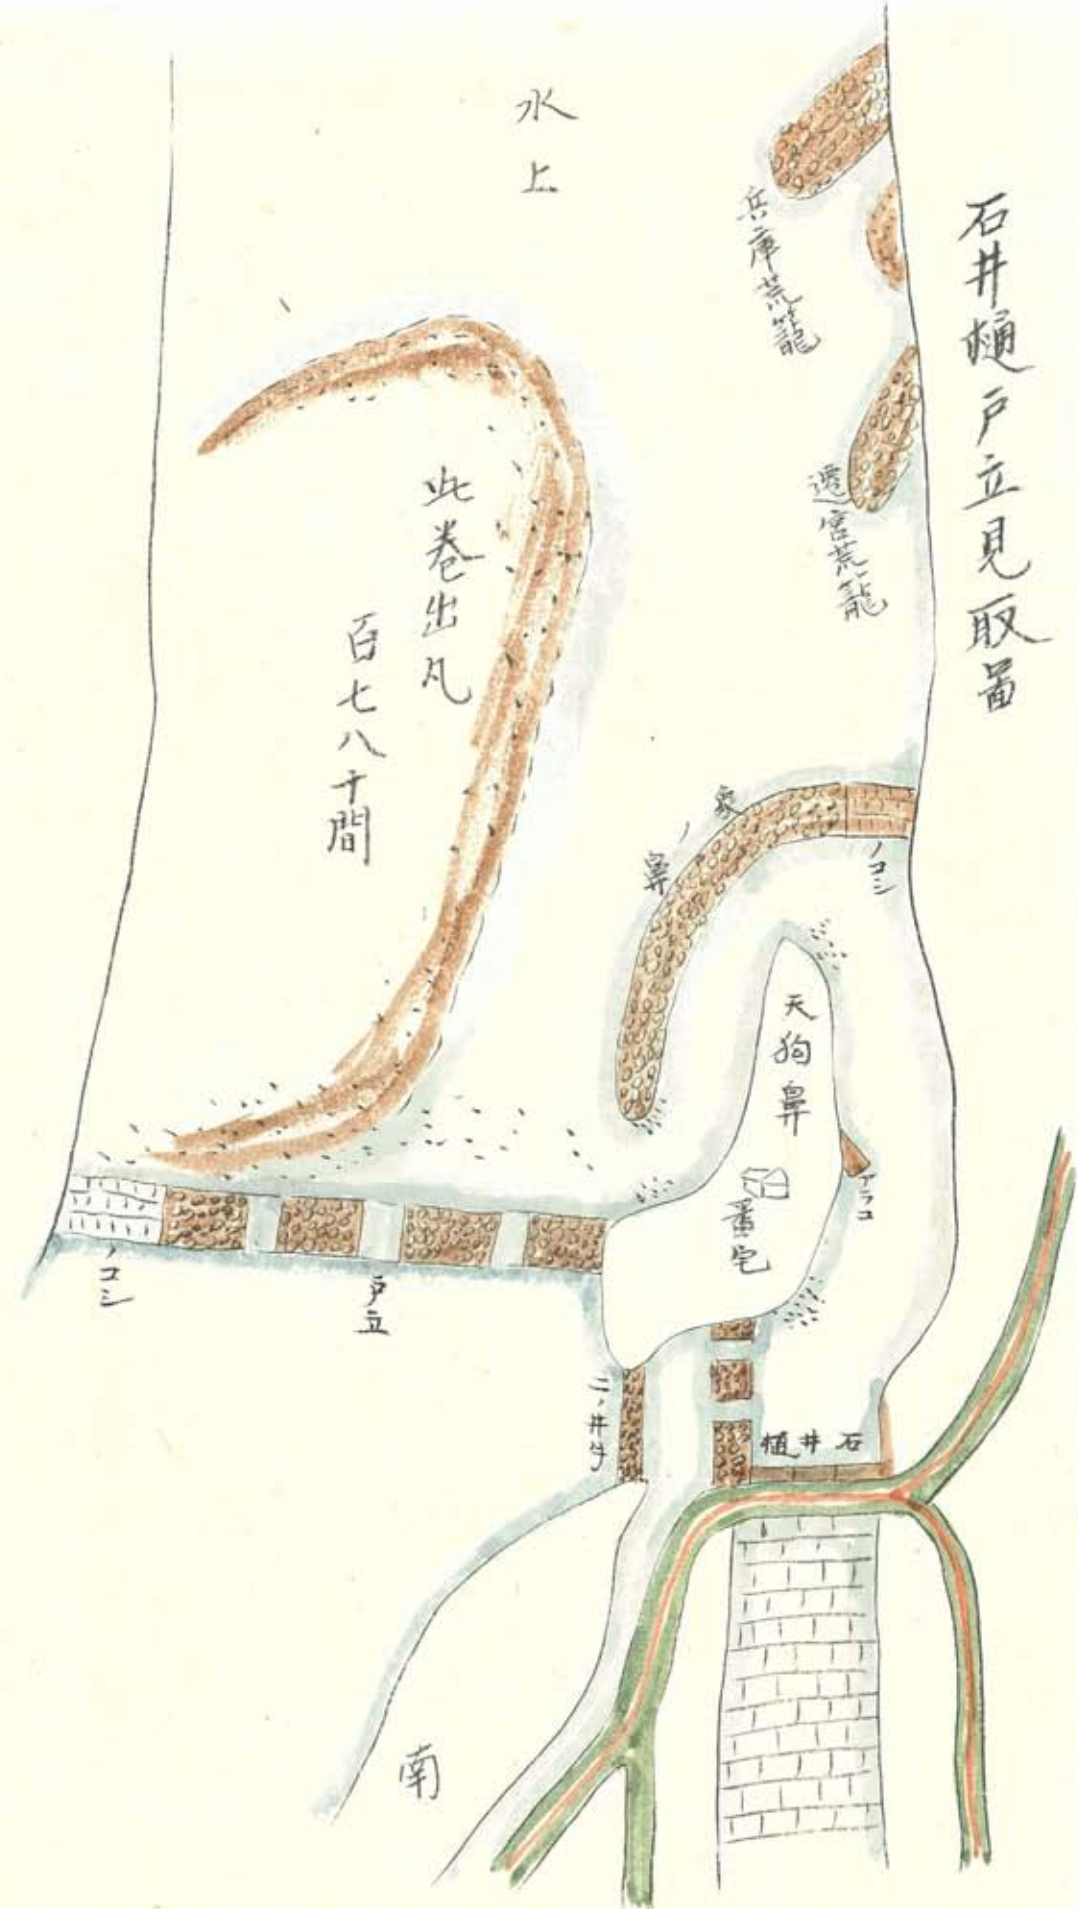 石井樋戸立見取畐
水上
兵庫荒籠
遷宮荒籠
此巻出凡
百七八十間
象ノ鼻
ノコシ
天狗鼻
番宅
アラコ
ノコシ
戸立
二ノ井手
石井樋
南